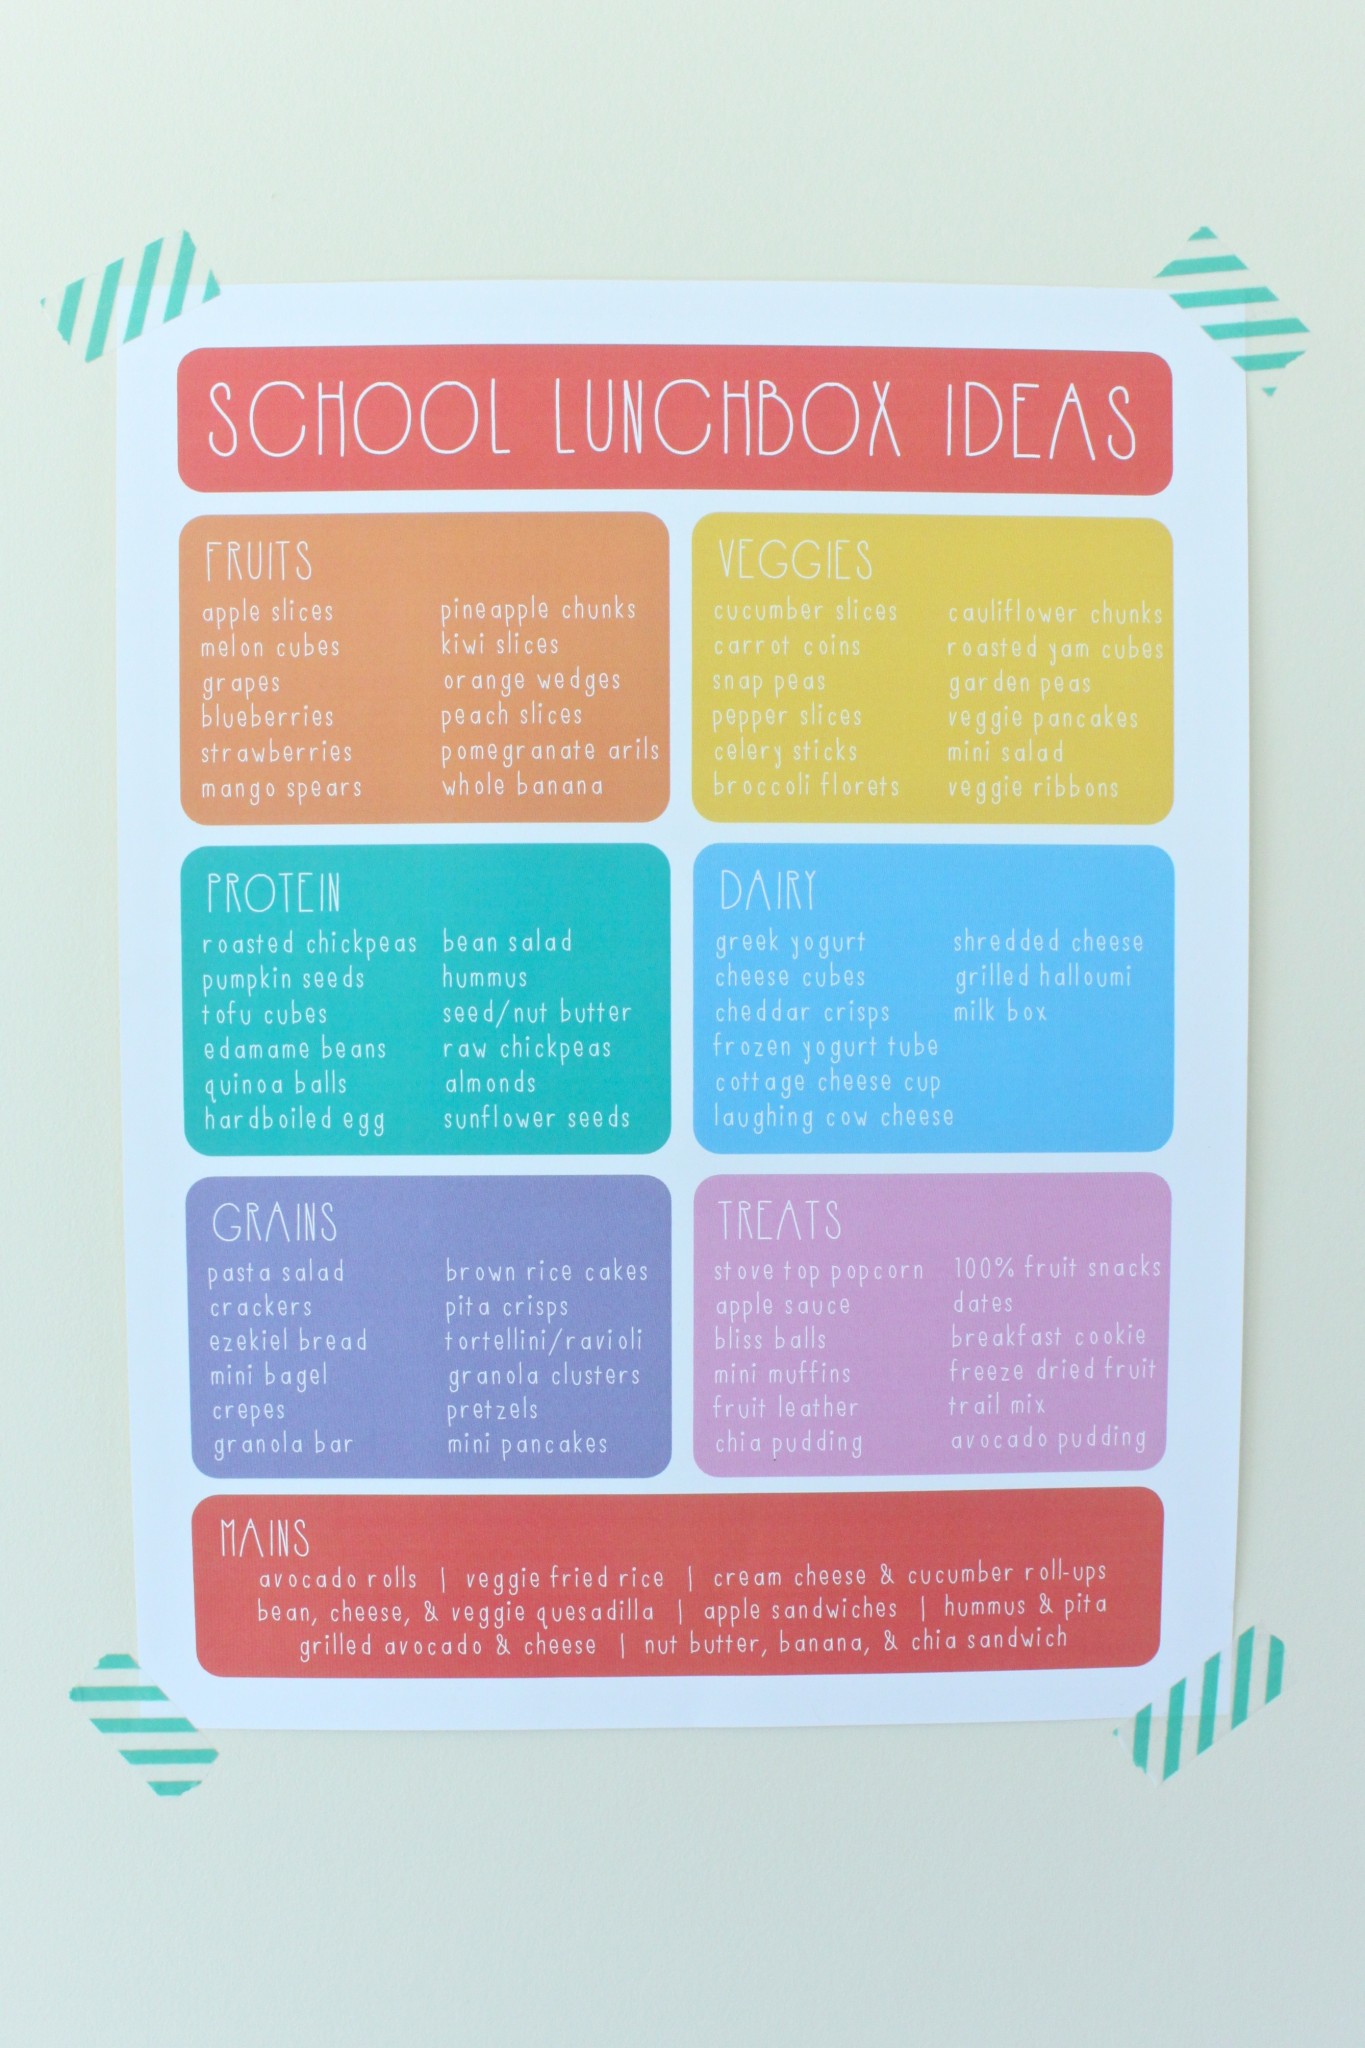 SCHOOL LUNCHBOX IDEAS
FRUITS
apple slices
melon cubes
grapes
blueberries
strawberries
mango spears
pineapple chunks
kiwi slices
orange wedges
peach slices
pomegranate arils
whole banana
VEGGIES
cucumber slices
carrot coins
snap peas
pepper slices
celery sticks
broccoli florets
cauliflower chunks
roasted yam cubes
garden peas
veggie pancakes
mini salad
veggie ribbons
PROTEIN
roasted chickpeas
pumpkin seeds
tofu cubes
edamame beans
quinoa balls
hardboiled egg
bean salad
hummus
seed/nut butter
raw chickpeas
almonds
sunflower seeds
DAIRY
greek yogurt
cheese cubes
cheddar crisps
frozen yogurt tube
cottage cheese cup
laughing cow cheese
shredded cheese
grilled halloumi
milk box
GRAINS
pasta salad
crackers
ezekiel bread
mini bagel
crepes
granola bar
brown rice cakes
pita crisps
tortellini/ravioli
granola clusters
pretzels
mini pancakes
TREATS
stove top popcorn
apple sauce
bliss balls
mini muffins
fruit leather
chia pudding
100% fruit snacks
dates
breakfast cookie
freeze dried fruit
trail mix
avocado pudding
MAINS
avocado rolls | veggie fried rice | cream cheese & cucumber roll-ups
bean, cheese, & veggie quesadilla | apple sandwiches | hummus & pita
grilled avocado & cheese | nut butter, banana, & chia sandwich